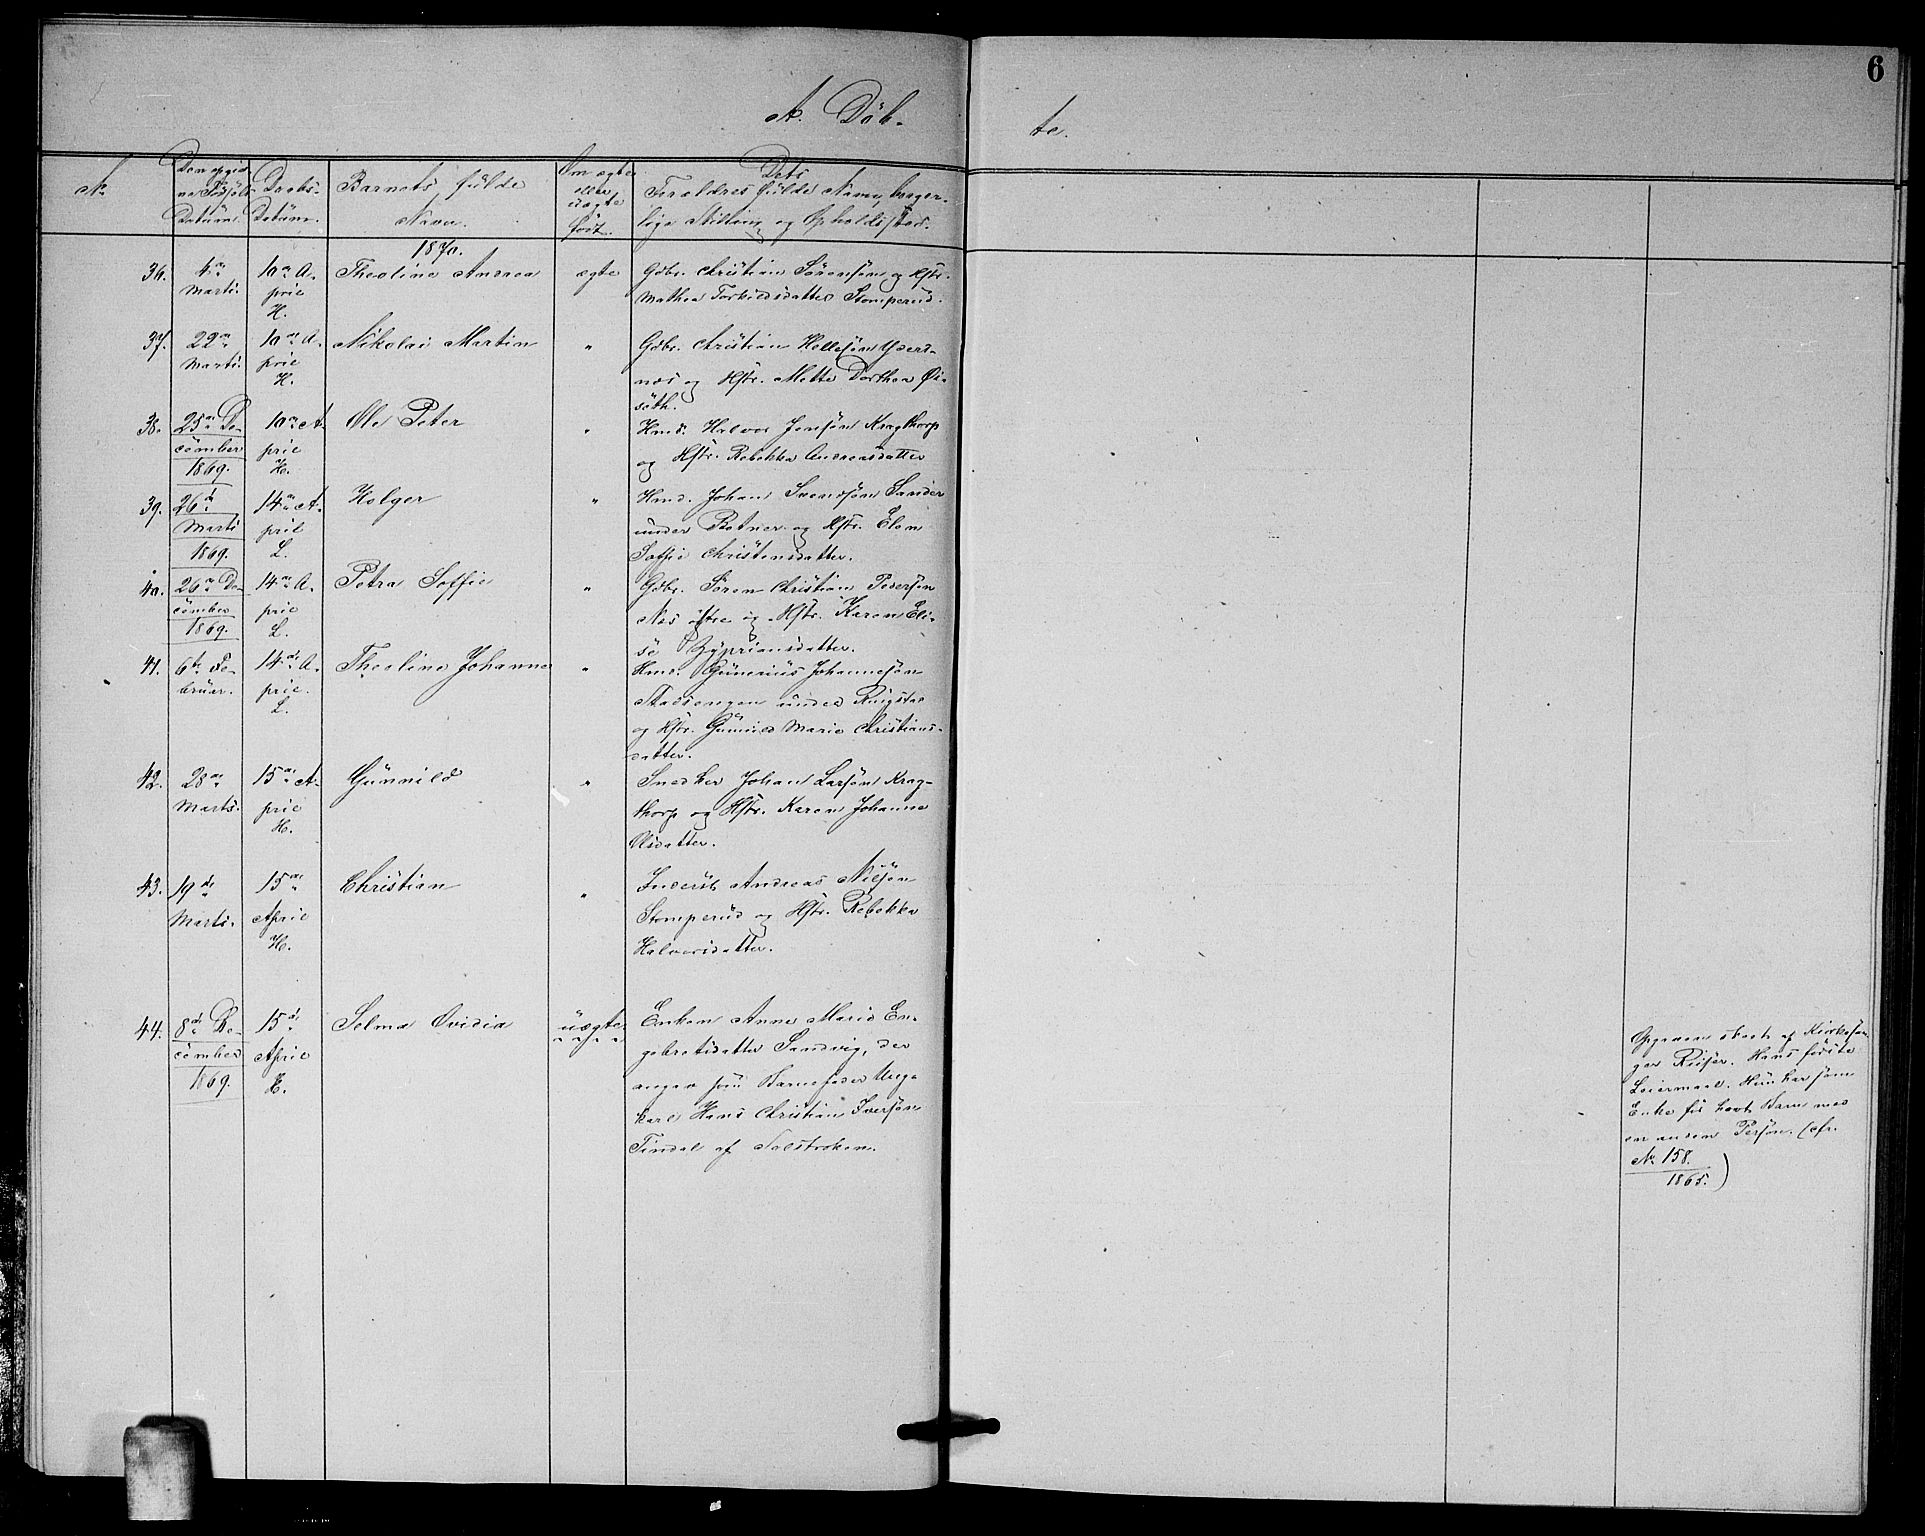 6
A. Döb-
te.
№
Den opgid-
ne Fødsels
Datüm.
Daabs-
Datüm.
Barnets fülde
Navn.
Om ægte
eller
üægte
født.
Dets
Forældres fülde Navn, borger-
lige Stilling og Opholdssted.
1870.
36. 4de Marts. 10de A-
pril
H. Theoline Andrea ægte Gdbr. Christian Sörensön og Hstr.
Mathea Torkildsdatter Stomperud.
37. 22de Marts. 10de A-
pril
H. Nikolai Martin " Gdbr. Christian Hellesön
næs og Hstr. Mette Dorthea Öi-
seth.
38. 25de De-
cömber
1869. 10de A-
pril
H. Ole Peter " Hmd. Halvor Jensön Kragthorp
og Hstr. Rebekka Andreasdatter
39. 26d
Marts
1869. 14de A-
pril
L. Holger " Hmd. Johan Svendsön Sander
under Botner og Hstr. Elen
Soffie Christensdatter.
40. 26de De-
cömber
1869. 14de A-
pril
L. Petra Soffie " Gdbr. Sören Christian Pedersön
Næs östre og Hstr. Karen Eli-
se Zypriansdatter.
41. 6te Fe-
bruar. 14de A-
pril.
L. Theoline Johanne " Hmd. Günerius Johannesön
under Ringstad
og Hstr. Günild Marie Christians-
datter.
42. 28de
Marts. 15de A-
pril
H. Günnild " Snedker Johan Larsön Krag-
thorp og Hstr. Karen Johanne
Olsdatter.
43. 19de
Marts. 15de
April
H. Christian " Inderst Andreas Nilsön
Stomperüd og Hstr. Rebekka
Halvorsdatter.
44. 8de De-
cömber
1869. 15de
April
H. Selma Ovidia üægte Enken Anne Marie En-
gebretsdatter Sandvig, der
angav som Barnefader Unge
karl Hans Christian Iversön
Tindal af Solstroken.
Opgaven skeet af Kirkesan-
ger Riiser. Hans første
Leiermaal. Hün har som
Enke før havt Barn med
en anden Persön. (cfr.
№ 158.
1865.)